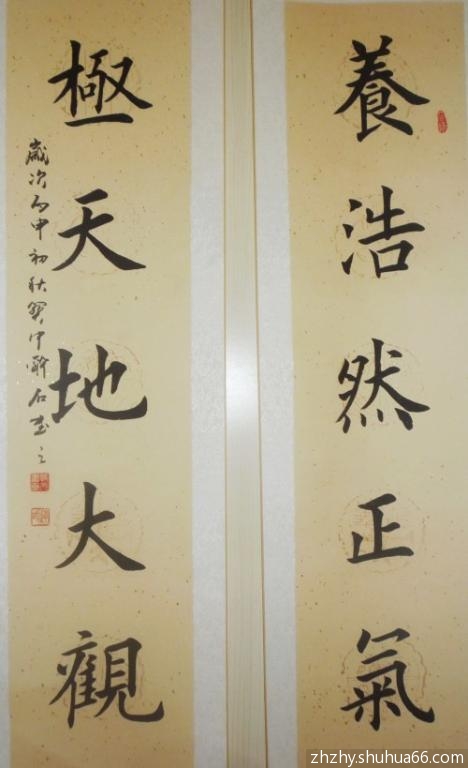 養浩然正氣
極天地大觀
歲次丙申初秋
zhzhy.shuhua66.com